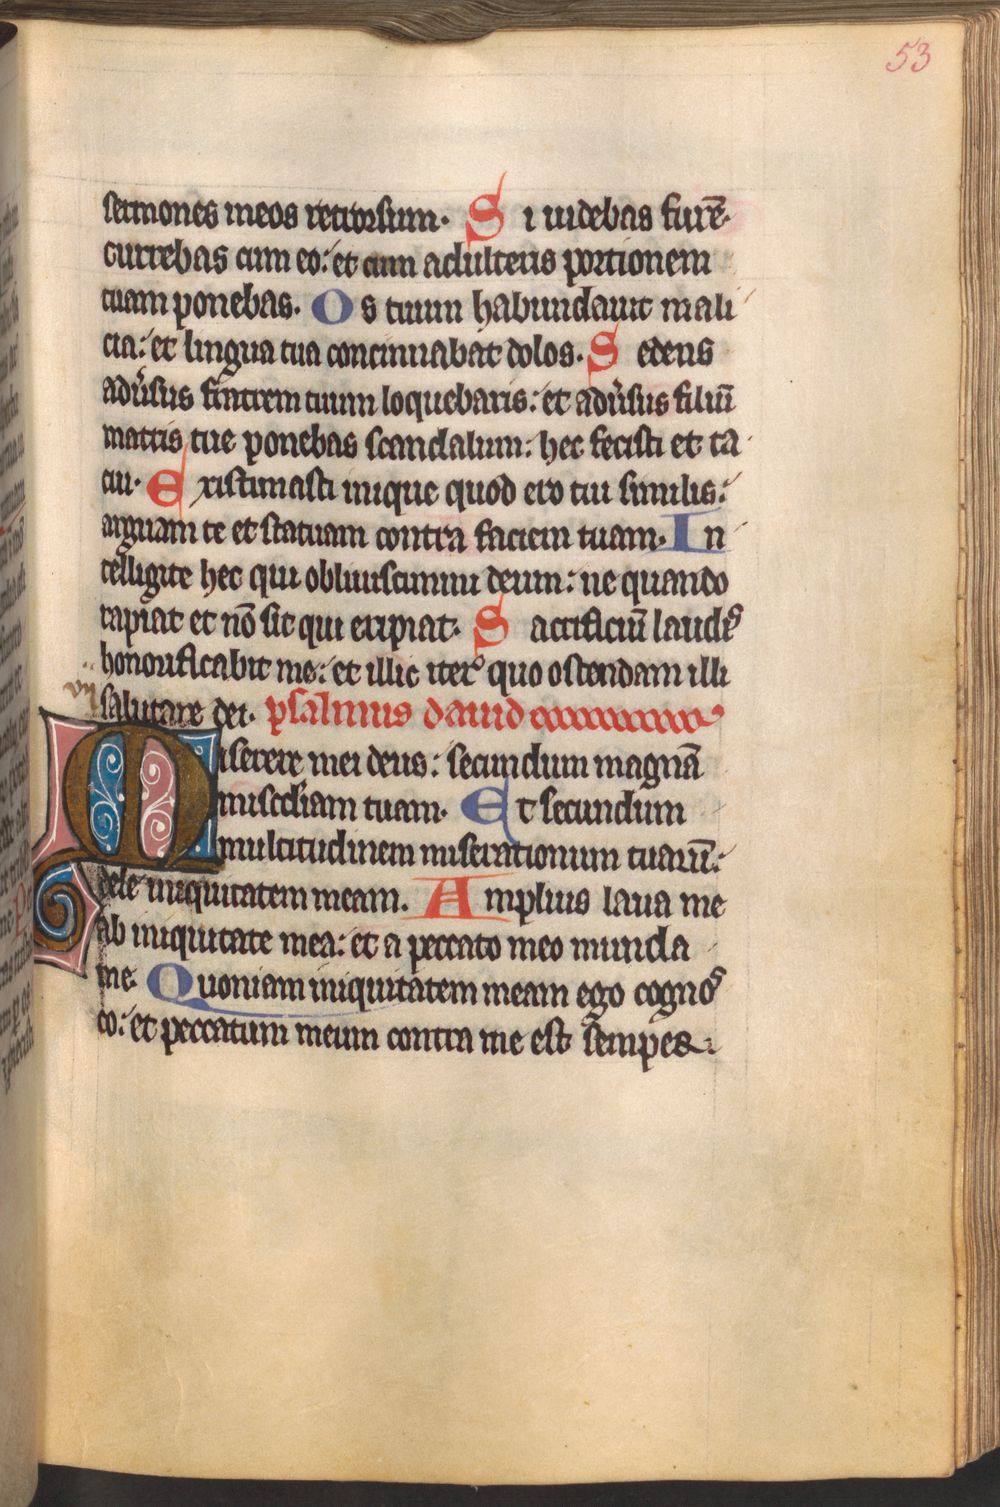 53
sermones meos retrorsum. Si uidebas furē
currebas cum eo: et cum adulteris portionem
tuam ponebas. Os tuum habundauit mali
cia: et lingua tua concinnabat dolos. Sedens
adu̓sus fratrem tuum loquebaris: et adu̓sus filiū
matris tue ponebas scandalum: hec fecisti et ta
cui. Existimasti inique quod ero tui similis:
arguam te et statuam contra faciem tuam. In
telligite hec qui obliuiscimini deum: ne quando
rapiat et nō sit qui eripiat. Sacrificiū laudꝭ
honorificabit me: et illic iterꝰ quo ostendam illi
vij
salutare dei. psalmus dauid
Miserere mei deus: secundum magnā
misccliam tuam. Et secundum
multitudinem miserationum tuarū:
dele iniquitatem meam. Amplius laua me
ab iniquitate mea: et a peccato meo munda
me. Quoniam iniquitatem meam ego cognoꝰ
co: et peccatum meum contra me est semper.